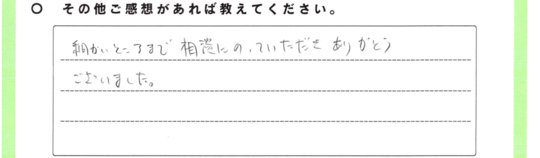 ○ その他ご感想があれば教えてください。
細かいところまで 相談にのっていただき ありがとう
ございました。